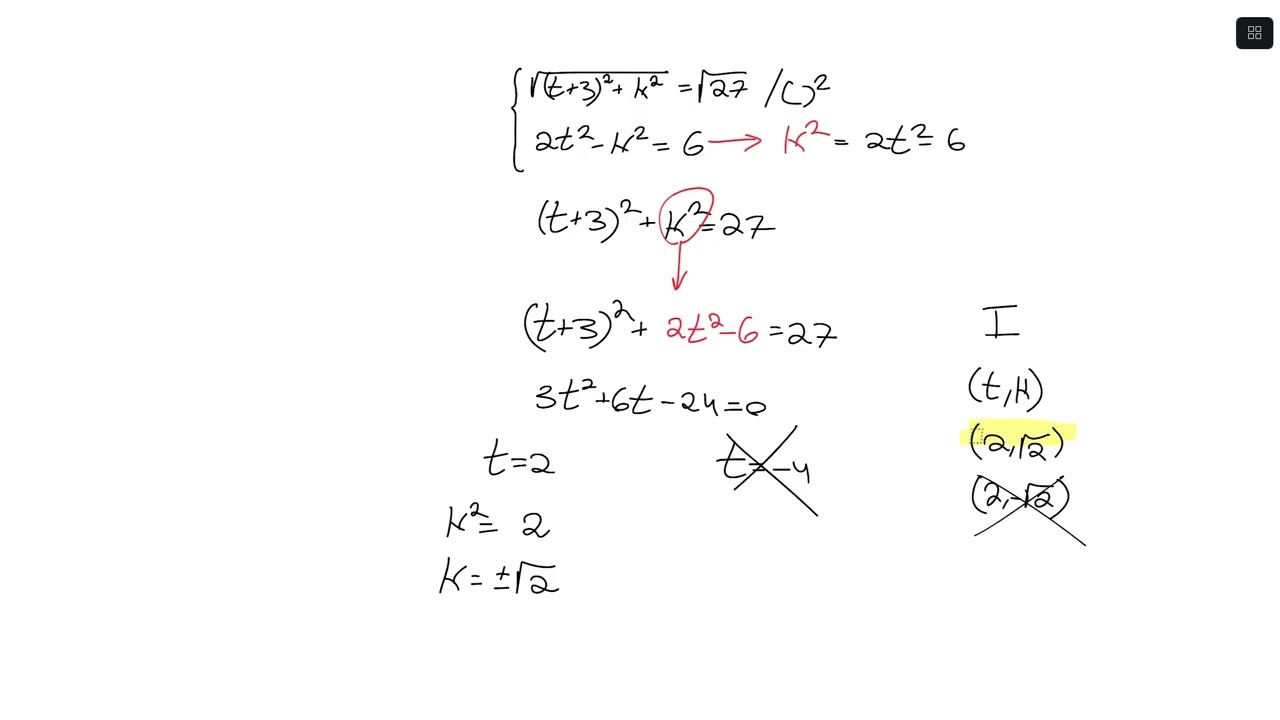 √(t+3)²+k² = √27 /( )²
2t²-k² = 6 → k² = 2t²-6
(t+3)²+k²=27
(t+3)²+2t²-6=27
I
3t²+6t-24=0
(t,k)
(2,√2)
t=2 t=-4
(2,-√2)
k²= 2
k=±√2